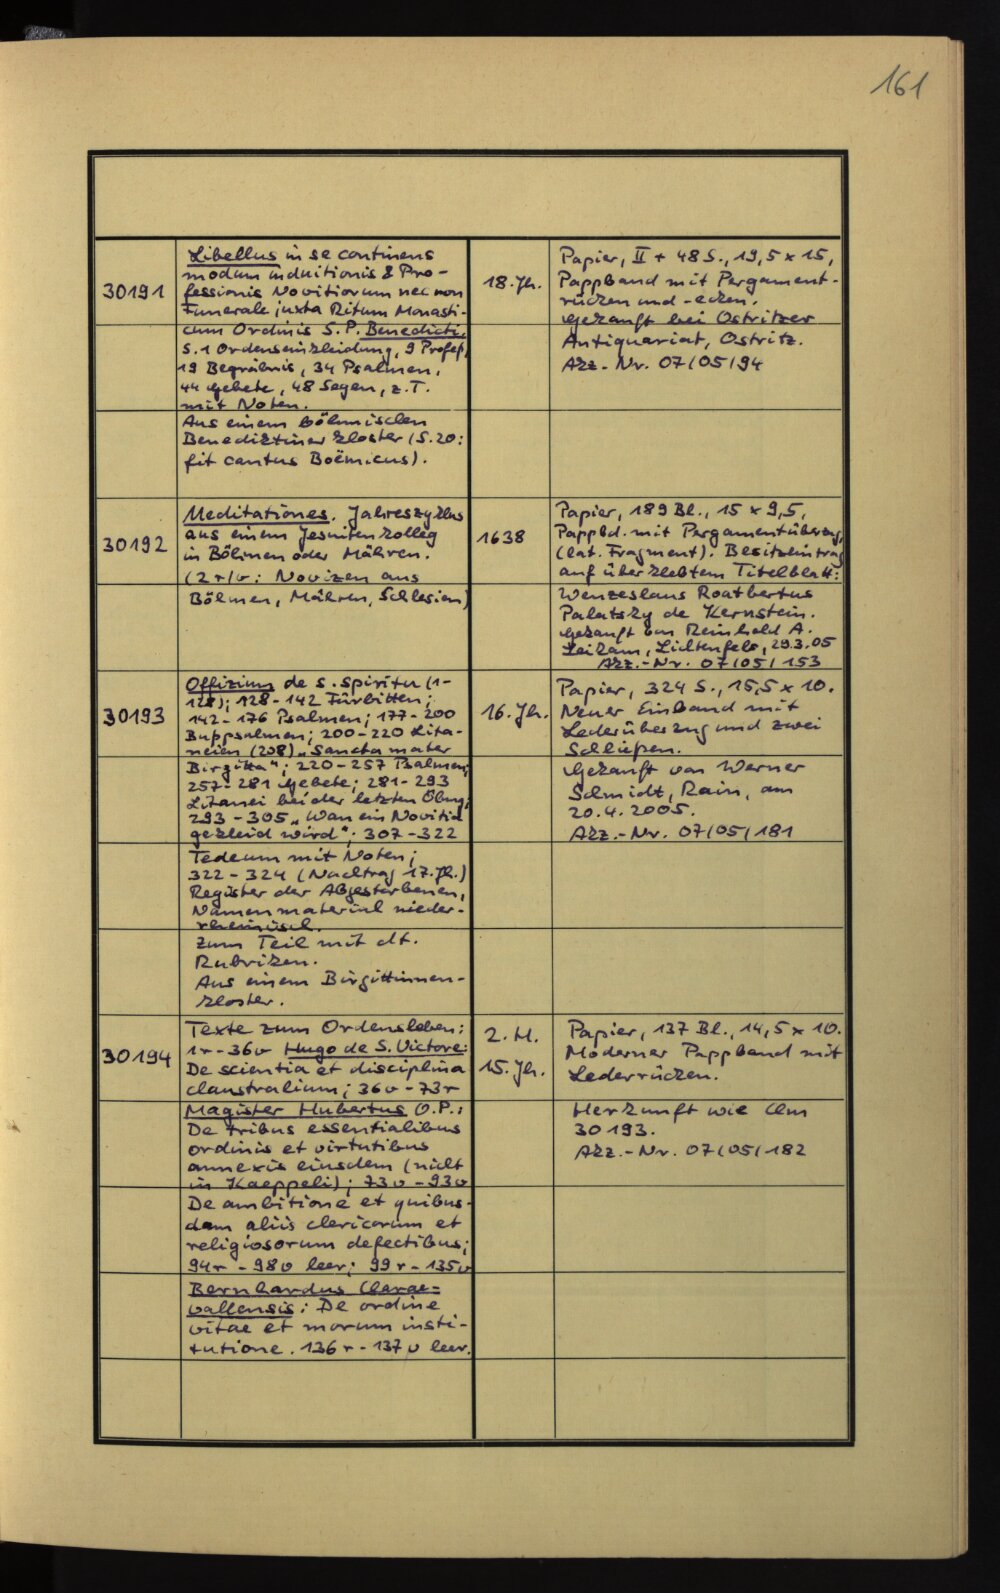 161
30191
Libellus in se continens
modum induitionis & Pro-
fessionis Novitiorum nec non
Funerale juxta Ritum Monasti-
cum Ordinis S. P. Benedicti.
S. 1 Ordenseinkleidung, 9 Profeß,
19 Begräbnis, 34 Psalmen,
44 Gebete, 48 Segen, z. T.
mit Noten.
Aus einem böhmischen
Benediktinerkloster (S. 20:
fit cantus Boëmicus).
18. Jh.
Papier, II + 48 S., 19,5 x 15,
Pappband mit Pergament-
rücken und -ecken.
Gekauft bei Ostritzer
Antiquariat, Ostritz.
Akz.-Nr. 07/05/94
30192
Meditationes. Jahreszyklus
aus einem Jesuitenkolleg
in Böhmen oder Mähren.
(2 r/v: Novizen aus
Böhmen, Mähren, Schlesien)
1638
Papier, 189 Bl., 15 x 9,5,
Pappbd. mit Pergamentüberzug,
(lat. Fragment). Besitzeintrag
auf überklebtem Titelblatt:
Wenzeslaus Roatbertus
Palatzky de Kernstein.
Gekauft von Reinhold A.
Leikam, Lichtenfels, 29.3.05
Akz.-Nr. 07/05/153
30193
Offizium de s. spiritu (1-
128); 128-142 Fürbitten;
142-176 Psalmen; 177-200
Bußpsalmen; 200-220 Lita-
neien (208) „Sancta mater
Birgitta“; 220-257 Psalmen;
257-281 Gebete; 281-293
Litanei bei der letzten Ölung;
293-305 „Wan ein Novitia
gekleid wird“; 307-322
Tedeum mit Noten;
322-324 (Nachtrag 17. Jh.)
Register der Abgestorbenen,
Namenmaterial nieder-
rheinisch.
Zum Teil mit dt.
Rubriken.
Aus einem Birgittinnen-
kloster.
16. Jh.
Papier, 324 S., 15,5 x 10.
Neuer Einband mit
Lederüberzug und zwei
Schließen.
Gekauft von Werner
Schmidt, Rain, am
20.4.2005.
Akz.-Nr. 07/05/181
30194
Texte zum Ordensleben:
1r-36v Hugo de S. Victore:
De scientia et disciplina
claustralium; 36v-73r
Magister Hubertus O.P.:
De tribus essentialibus
ordinis et virtutibus
annexis eiusdem (nicht
in Kaeppeli); 73v-93v
De ambitione et quibus-
dam aliis clericorum et
religiosorum defectibus;
94r-98v leer; 99r-135v
Bernhardus Clarae-
vallensis: De ordine
vitae et morum insti-
tutione. 136r-137v leer.
2. H.
15. Jh.
Papier, 137 Bl., 14,5 x 10.
Moderner Pappband mit
Lederrücken.
Herkunft wie Clm
30193.
Akz.-Nr. 07/05/182